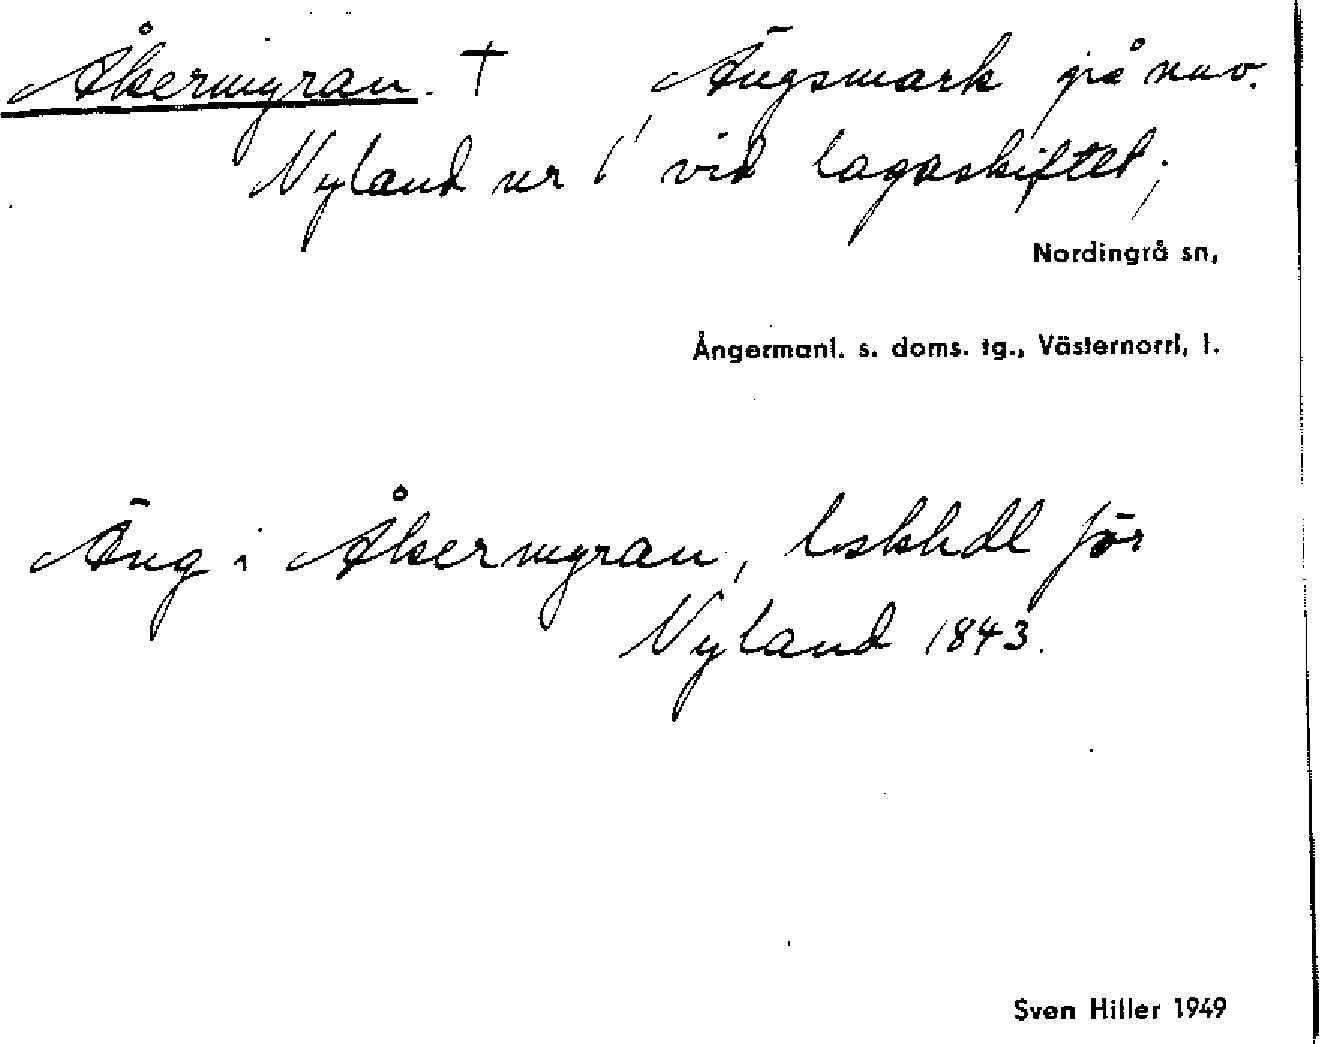 Åkermyran. † Ängsmark på nuv.
Nyland nr 1 vid lagaskiftet;
Nordingrå sn,
Ångermanl. s. doms. tg., Västernorrl, l.
Äng i Åkermyran, lskhdl för
Nyland 1843.
Sven Hiller 1949